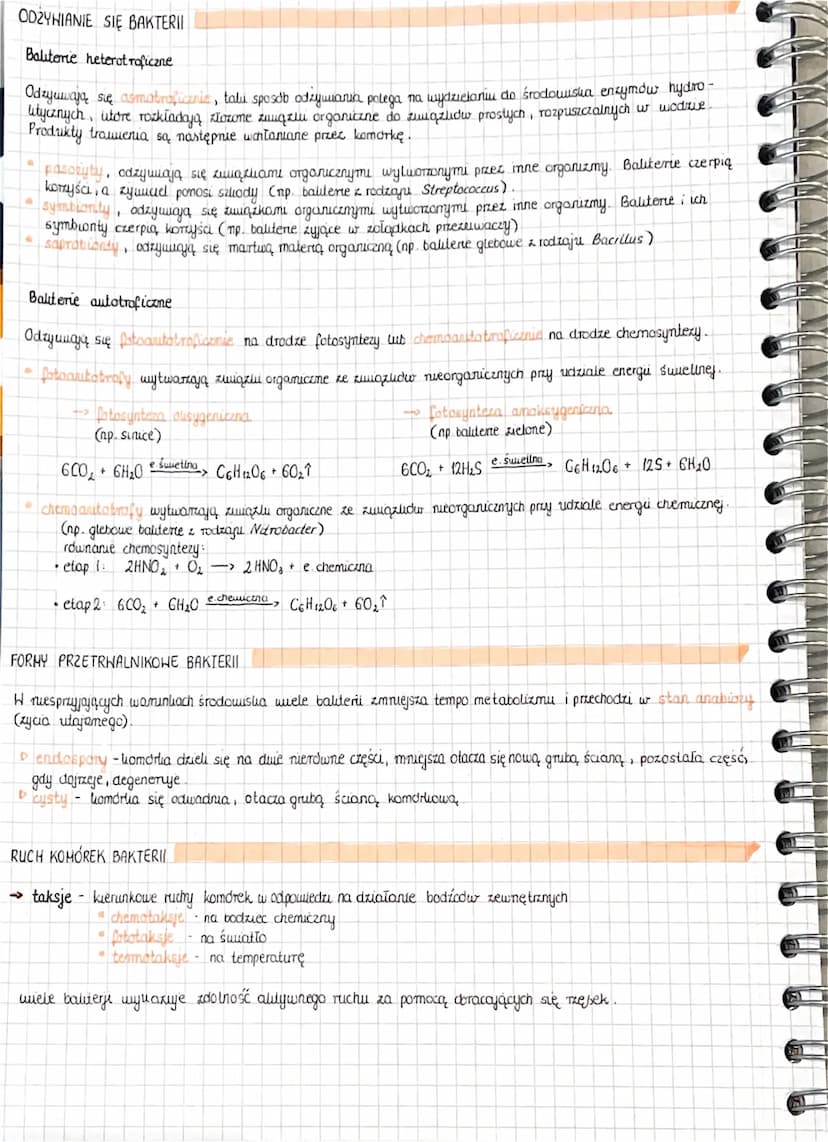 ODŻYWIANIE SIĘ BAKTERII
Bakterie heterotroficzne
Odżywiają się osmotroficznie, taki sposób odżywiania polega na wydzielaniu do środowiska enzymów hydro-
litycznych, które rozkładają złożone związki organiczne do związków prostych, rozpuszczalnych w wodzie.
Produkty trawienia są następnie wchłaniane przez komórkę.
• pasożyty, odżywiają się związkami organicznymi wytworzonymi przez inne organizmy. Bakterie czerpią
korzyści, a żywiciel ponosi szkody (np. bakterie z rodzaju Streptococcus).
• symbionty, odżywiają się związkami organicznymi wytworzonymi przez inne organizmy. Bakterie i ich
symbionty czerpią korzyści (np. bakterie żyjące w żołądkach przeżuwaczy)
• saprobionty, odżywiają się martwą materią organiczną (np. bakterie glebowe z rodzaju Bacillus)
Bakterie autotroficzne
Odżywiają się fotoautotroficznie na drodze fotosyntezy lub chemoautotroficznie na drodze chemosyntezy.
• fotoautotrofy wytwarzają związki organiczne ze związków nieorganicznych przy udziale energii świetlnej.
--> fotosynteza oksygeniczna
(np. sinice)
6CO₂ + 6H₂O e. świetlna → C₆H₁₂O₆ + 6O₂↑
--> fotosynteza anoksygeniczna
(np. bakterie zielone)
6CO₂ + 12H₂S e. świetlna → C₆H₁₂O₆ + 12S + 6H₂O
• chemoautotrofy wytwarzają związki organiczne ze związków nieorganicznych przy udziale energii chemicznej.
(np. glebowe bakterie z rodzaju Nitrobacter)
równanie chemosyntezy:
• etap 1: 2HNO₂ + O₂ → 2HNO₃ + e. chemiczna
• etap 2: 6CO₂ + 6H₂O e. chemiczna → C₆H₁₂O₆ + 6O₂↑
FORMY PRZETRWALNIKOWE BAKTERII
W niesprzyjających warunkach środowiska wiele bakterii zmniejsza tempo metabolizmu i przechodzi w stan anabiozy
(życia utajonego).
▷ endospory - komórka dzieli się na dwie nierówne części, mniejsza otacza się nową grubą ścianą, pozostała część,
gdy dojrzeje, degeneruje
▷ cysty - komórka się odwadnia, otacza grubą ścianą komórkową
RUCH KOMÓREK BAKTERII
→ taksje - kierunkowe ruchy komórek w odpowiedzi na działanie bodźców zewnętrznych
• chemotaksje - na bodziec chemiczny
• fototaksje - na światło
• termotaksje - na temperaturę
wiele bakterii wykazuje zdolność aktywnego ruchu za pomocą obracających się rzęsek.